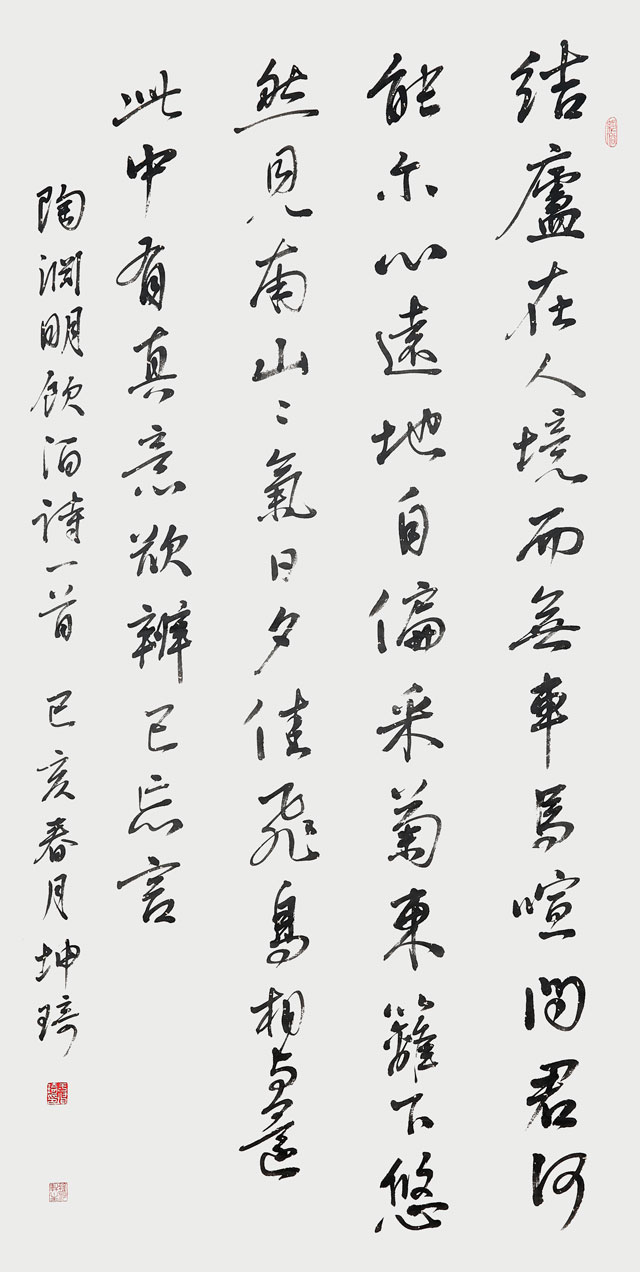 結廬在人境而無車馬喧問君何
能尓心遠地自偏采菊東籬下悠
然見南山山氣日夕佳飛鳥相与還
此中有真意欲辨已忘言
陶淵明飲酒詩一首 己亥春月坤琦